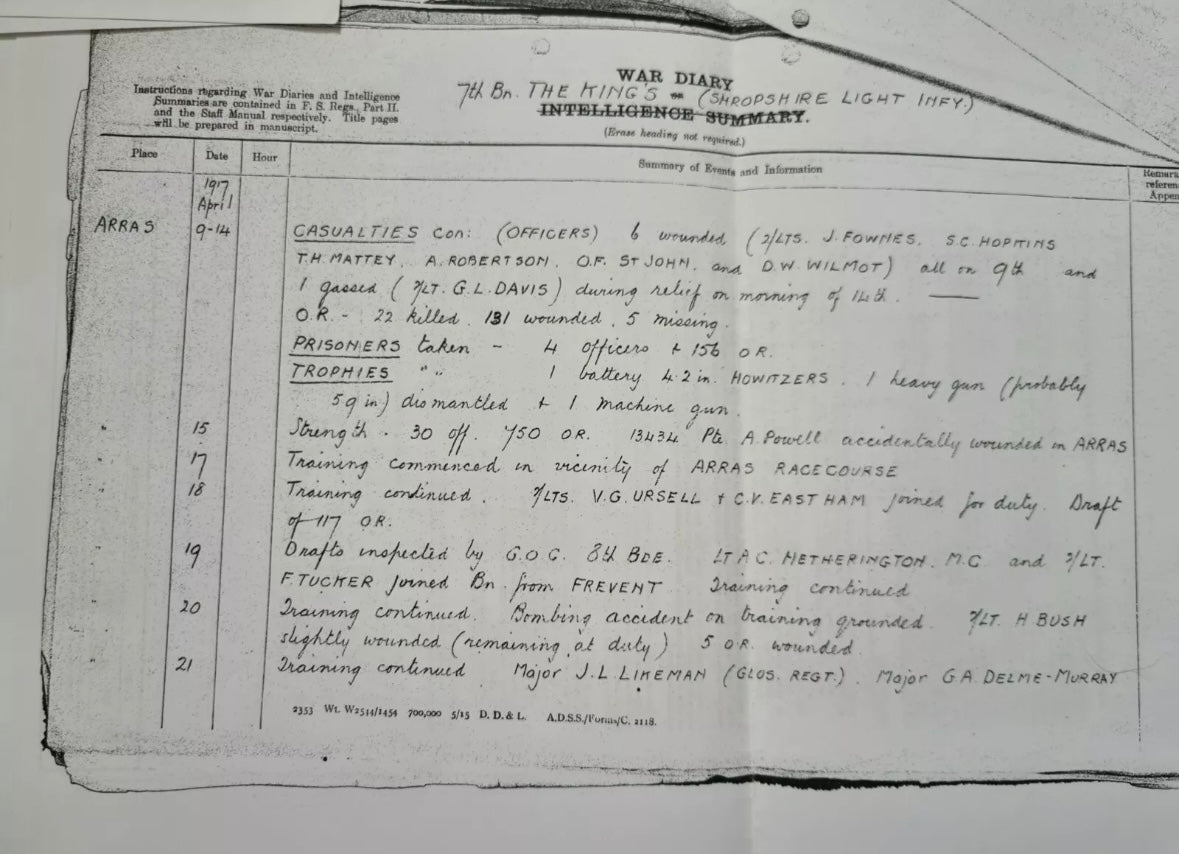 WAR DIARY
7th Bn. THE KING'S (SHROPSHIRE LIGHT INFY.)
INTELLIGENCE SUMMARY.
(Erase heading not required.)
Instructions regarding War Diaries and Intelligence
Summaries are contained in F. S. Regs., Part II.
and the Staff Manual respectively. Title pages
will be prepared in manuscript.
Place Date Hour Summary of Events and Information
1917
April
ARRAS 9-14 CASUALTIES con: (OFFICERS) 6 wounded (2/LTS. J. FOWNES, S.C. HOPKINS
T.H. MATTEY, A. ROBERTSON, O.F. ST JOHN, and D.W. WILMOT) all on 9th and
1 gassed (2/LT. G.L. DAVIS) during relief on morning of 14th. —
O.R. - 22 killed, 131 wounded, 5 missing.
PRISONERS taken - 4 officers + 156 O.R.
TROPHIES " " 1 battery 4.2 in. HOWITZERS. 1 heavy gun (probably
5.9 in) dismantled + 1 machine gun.
" 15 Strength. 30 off. 750 O.R. 13434 Pte A. Powell accidentally wounded in ARRAS
" 17 Training commenced in vicinity of ARRAS RACECOURSE
" 18 Training continued. 2/LTS. V.G. URSELL + C.V. EASTHAM joined for duty. Draft
of 117 O.R.
" 19 Drafts inspected by G.O.C. 8th BDE. LT A.C. HETHERINGTON, M.C. and 2/LT.
F. TUCKER joined Bn. from FREVENT Training continued
" 20 Training continued. Bombing accident on training grounded. 2/LT. H BUSH
slightly wounded (remaining at duty) 5 O.R. wounded.
" 21 Training continued Major J.L. LIKEMAN (GLOS. REGT.). Major G.A. DELME-MURRAY
2353 Wt. W2544/1454 700,000 5/15 D. D. & L. A.D.S.S./Forms/C. 2118.